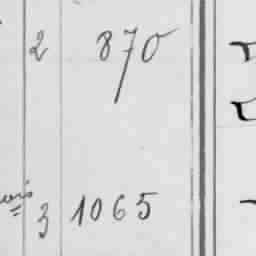 2 870
3 1065